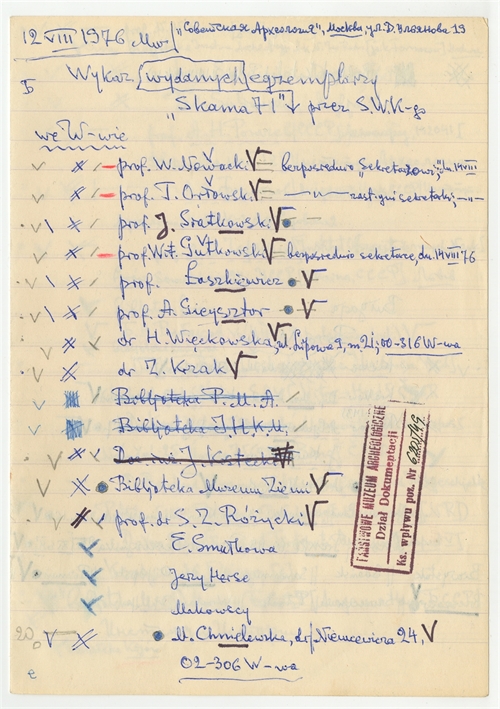 12 VIII 1976 Mw. "Советская Археология", Москва, ул. Д. Ульянова 19
Б Wykaz wydanych egzemplarzy
"Skama 71" przez S.W.K-go
we W-wie
prof. W. Nowacki = bezpośrednio "Sekretarzowi", dn. 14 VIII
prof. T. Orłowski = —"— zast-yni sekretarki, —"—
prof. J. Sratkowski
prof. Wit. Gutkowski = bezpośrednio sekretarce, dn. 14 VIII 76
prof. Łaszkiewicz
prof. A. Gieysztor
dr H. Więckowska, ul. Lipowa 9, m. 21, 00-316 W-wa
dr Z. Krzak
Biblioteka P.M.A.
Biblioteka I.H.K.M.
J. Kostecki
Biblioteka Muzeum Ziemi
prof. dr S. Z. Różycki
E. Smutkowa
Jerzy Herse
Makowscy
M. Chmielewska, Niemcewicza 24,
02-306 W-wa
PAŃSTWOWE MUZEUM ARCHEOLOGICZNE
Dział Dokumentacji
Ks. wpływu poz. Nr
e